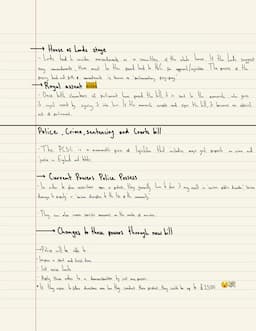 House of Lords stage
- Lords had to consider amendments in a committee of the whole house. If the Lords suggest
any amendments, these must be then passed back to the HOC for approval/rejection. The process of the
passing back and forth of amendments is known as 'parliamentary ping-pong'
Royal assent
- Once both chambers of parliament have passed the bill, it is sent to the monarch, who gives
it royal assent by signing it into law. Is the monarch assents and signs the bill, it becomes an official
act of parliament.
Police, Crime, sentencing and Courts bill
- The PCSC is a piece of legislation that includes major gvt proposals on crime and
justice in England and Wales.
Current Powers Police Possess
- In order to place restrictions on a protest, they generally have to show it may result in serious public disorder, serious
damage to property or serious disruption to the life of the community.
- They can also impose specific measures on the routes of marches.
Changes to these powers through new bill
- Police will be able to:
- Impose a start and finish time
- Set noise limits
- Apply these rules to a demonstration by just one person.
If they refuse to follow directions over how they conduct their protest, they could be up to £2,500